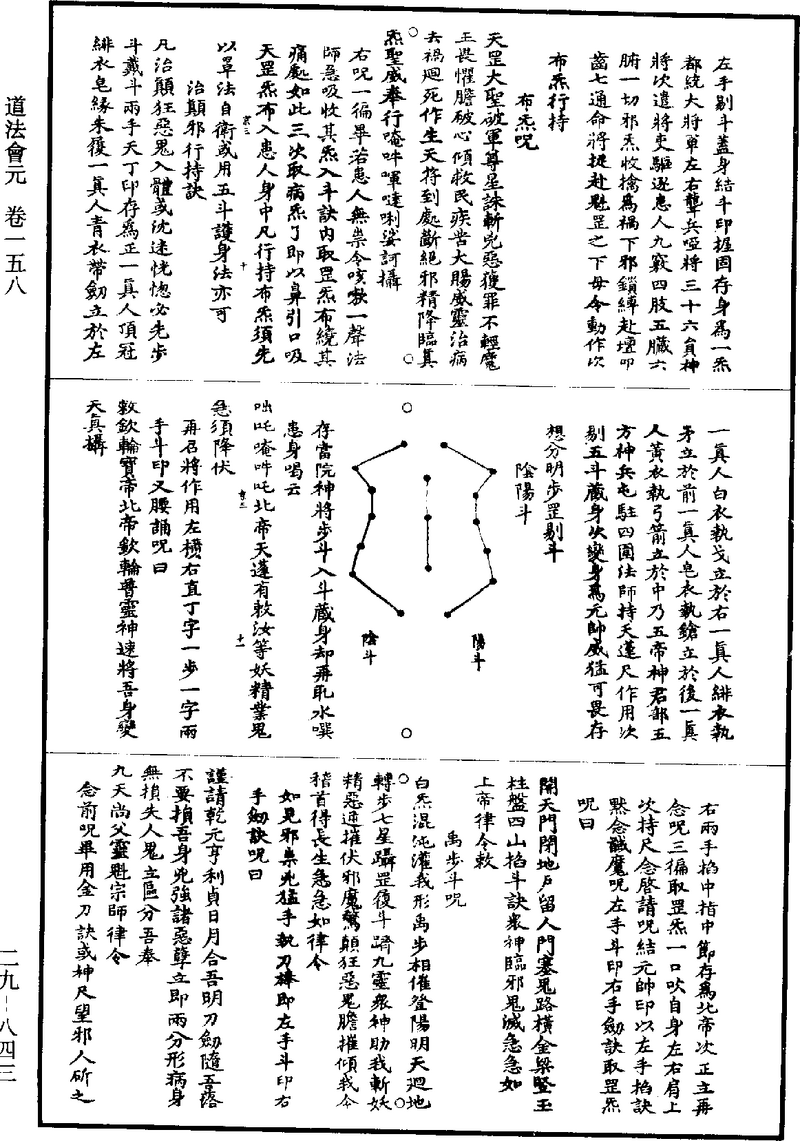 道法會元　卷一五八
二九―八四三
左手剔斗蓋身結斗印握固存身為一炁
都統大將軍左右聾兵啞將三十六員神
將次遣將吏驅逐患人九竅四肢五臟六
腑一切邪炁收擒為禍下邪鎖縛赴壇叩
齒七通命將捉赴魁罡之下毋令動作次
布炁行持
布炁呪
天罡大聖破軍尊星誅斬兇惡獲罪不輕魔
王畏懼膽破心傾救民疾苦大腸威靈治病
去禍迴死作生天將到處斷絕邪精降臨真
炁聖威奉行唵吽㖶噠唎娑訶攝
右呪一徧畢若患人無祟令咳嗽一聲法
師急吸收其炁入斗訣內取罡炁布繞其
痛處如此三次取病炁了即以鼻引口吸
天罡炁布入患人身中凡行持布炁須先
京三　十
以罩法自衛或用五斗護身法亦可
治顛邪行持訣
凡治顛狂惡鬼入體或沈迷恍惚必先步
斗戴斗兩手天丁印存為正一真人頂冠
緋衣皂緣朱履一真人青衣帶劒立於左
一真人白衣執戈立於右一真人緋衣執
矛立於前一真人皂衣執鎗立於後一真
人黃衣執弓箭立於中乃五帝神君部五
方神兵屯駐四圍法師持天蓬尺作用次
剔五斗藏身次變身為元帥威猛可畏存
想分明步罡剔斗
陰陽斗
陽斗
陰斗
存當院神將步斗入斗藏身却再㕹水噀
患身喝云
咄吒唵吽吒北帝天蓬有敕汝等妖精業鬼
京三　十一
急須降伏
再召將作用左橫右直丁字一步一字兩
手斗印叉腰誦呪曰
敕欽輪寶帝北帝欽輪普靈神速將吾身變
天真攝
右兩手掐中指中節存為北帝次正立再
念呪三徧取罡炁一口吹自身左右肩上
次持尺念啓請呪結元帥印以左手掐訣
黙念馘魔呪左手斗印右手劒訣取罡炁
呪曰
開天門閉地戶留人門塞鬼路橫金梁豎玉
柱盤四山掐斗訣衆神臨邪鬼滅急急如
上帝律令敕
禹步斗呪
白炁混沌灌我形禹步相催登陽明天迴地
轉步七星躡罡履斗躋九靈衆神助我斬妖
精惡逆摧伏邪魔驚顛狂惡鬼膽摧傾我今
稽首得長生急急如律令
如見邪祟兇猛手執刀棒即左手斗印右
手劒訣呪曰
謹請乾元亨利貞日月合吾明刀劒隨吾落
不要損吾身兇強諸惡孽立即兩分形病身
無損失人鬼立區分吾奉
九天尚父靈魁宗師律令
念前呪畢用金刀訣或神尺望邪人斫之